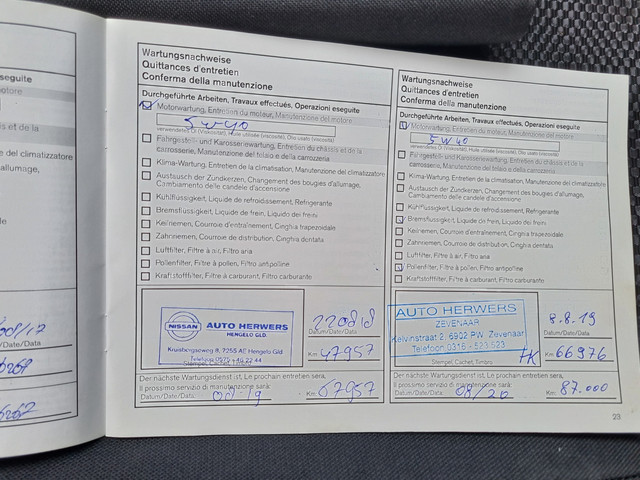 Wartungsnachweise
Quittances d'entretien
Conferma della manutenzione
Durchgeführte Arbeiten, Travaux effectués, Operazioni eseguite
Motorwartung, Entretien du moteur, Manutenzione del motore
5W40
verwendetes Öl (Viskosität), Huile utilisée (viscosité), Olio usato (viscosità)
Fahrgestell- und Karosseriewartung, Entretien du châssis et de la
carrosserie, Manutenzione del telaio e della carrozzeria
Klima-Wartung, Entretien de la climatisation, Manutenzione del climatizzatore
Austausch der Zündkerzen, Changement des bougies d'allumage,
Cambiamento delle candele d'accensione
Kühlflüssigkeit, Liquide de refroidissement, Refrigerante
Bremsflüssigkeit, Liquide de frein, Liquido dei freni
Keilriemen, Courroie d'entraînement, Cinghia trapezoidale
Zahnriemen, Courroie de distribution, Cinghia dentata
Luftfilter, Filtre à air, Filtro aria
Pollenfilter, Filtre à pollen, Filtro antipolline
Kraftstoffilter, Filtre à carburant, Filtro carburante
NISSAN AUTO HERWERS
HENGELO GLD.
Kruisbergseweg 8, 7255 AE Hengelo Gld
Telefoon 0575 - 46 22 44
Stempel, Cachet, Timbro
220818
Datum/Date/Data
Km 47957
Der nächste Wartungsdienst ist, Le prochain entretien sera,
Il prossimo servizio di manutenzione sarà:
Datum/Date/Data: 08 19 Km: 67957
Wartungsnachweise
Quittances d'entretien
Conferma della manutenzione
Durchgeführte Arbeiten, Travaux effectués, Operazioni eseguite
Motorwartung, Entretien du moteur, Manutenzione del motore
5W40
verwendetes Öl (Viskosität), Huile utilisée (viscosité), Olio usato (viscosità)
Fahrgestell- und Karosseriewartung, Entretien du châssis et de la
carrosserie, Manutenzione del telaio e della carrozzeria
Klima-Wartung, Entretien de la climatisation, Manutenzione del climatizzatore
Austausch der Zündkerzen, Changement des bougies d'allumage,
Cambiamento delle candele d'accensione
Kühlflüssigkeit, Liquide de refroidissement, Refrigerante
Bremsflüssigkeit, Liquide de frein, Liquido dei freni
Keilriemen, Courroie d'entraînement, Cinghia trapezoidale
Zahnriemen, Courroie de distribution, Cinghia dentata
Luftfilter, Filtre à air, Filtro aria
Pollenfilter, Filtre à pollen, Filtro antipolline
Kraftstoffilter, Filtre à carburant, Filtro carburante
AUTO HERWERS
ZEVENAAR
Kelvinstraat 2, 6902 PW Zevenaar
Telefoon 0316 - 523 523
HK
Stempel, Cachet, Timbro
8.8.19
Datum/Date/Data
Km 66976
Der nächste Wartungsdienst ist, Le prochain entretien sera,
Il prossimo servizio di manutenzione sarà:
Datum/Date/Data: 08/20 Km: 87.000
23